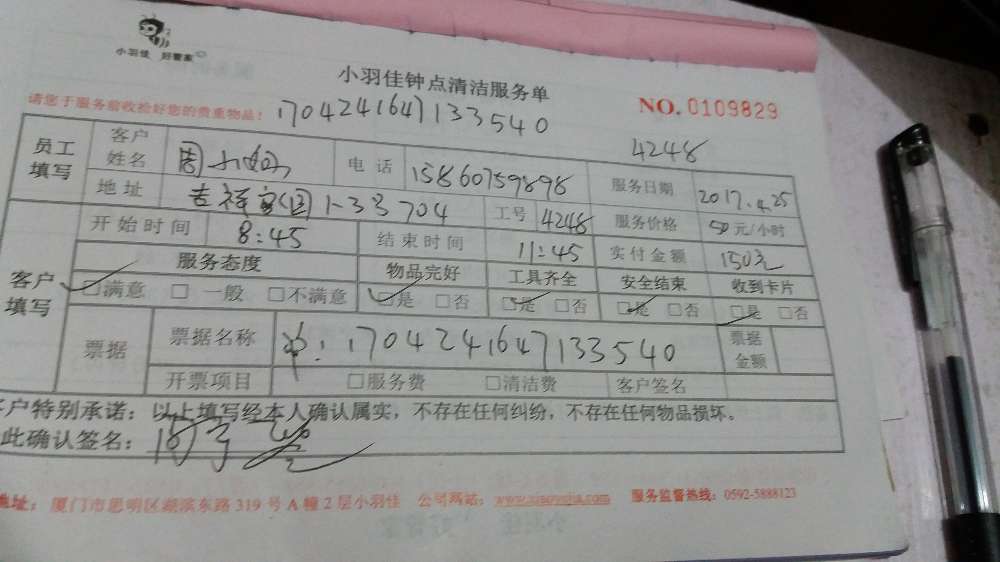 小羽佳 好管家
小羽佳钟点清洁服务单
请您于服务前收捡好您的贵重物品!
NO.0109829
1704241647133540
4248
员工填写
客户姓名 周小姐 电话 15860759898 服务日期 2017.4.25
地址 吉祥家园 1-33 704 工号 4248 服务价格 50元/小时
客户填写
开始时间 8:45 结束时间 11:45 实付金额 150元
服务态度 物品完好 工具齐全 安全结束 收到卡片
□满意 □一般 □不满意 □是 □否 □是 □否 □是 □否 □是 □否
票据 票据名称 : 1704241647133540 票据金额
开票项目 □服务费 □清洁费 客户签名
客户特别承诺:以上填写经本人确认属实,不存在任何纠纷,不存在任何物品损坏。
此确认签名:
地址:厦门市思明区湖滨东路319号A幢2层小羽佳 公司网站:www.xiaoyujia.com 服务监督热线:0592-5888123